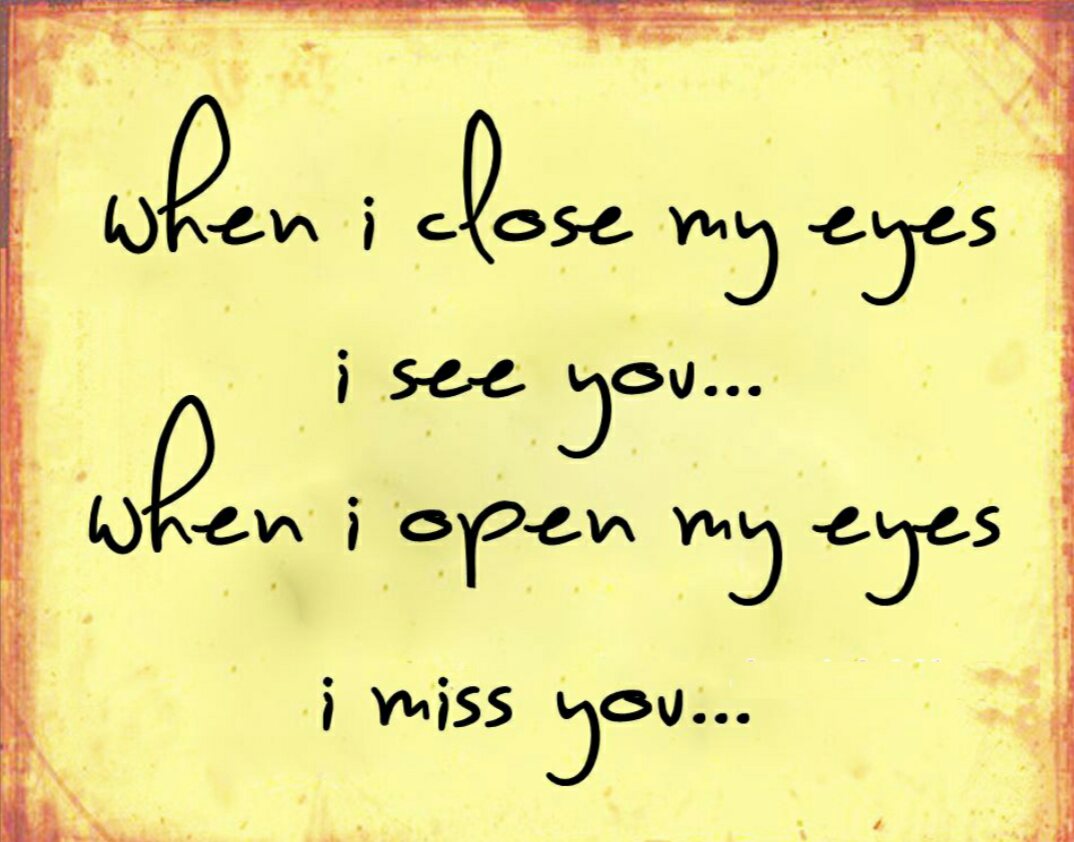 when i close my eyes
i see you...
when i open my eyes
i miss you...